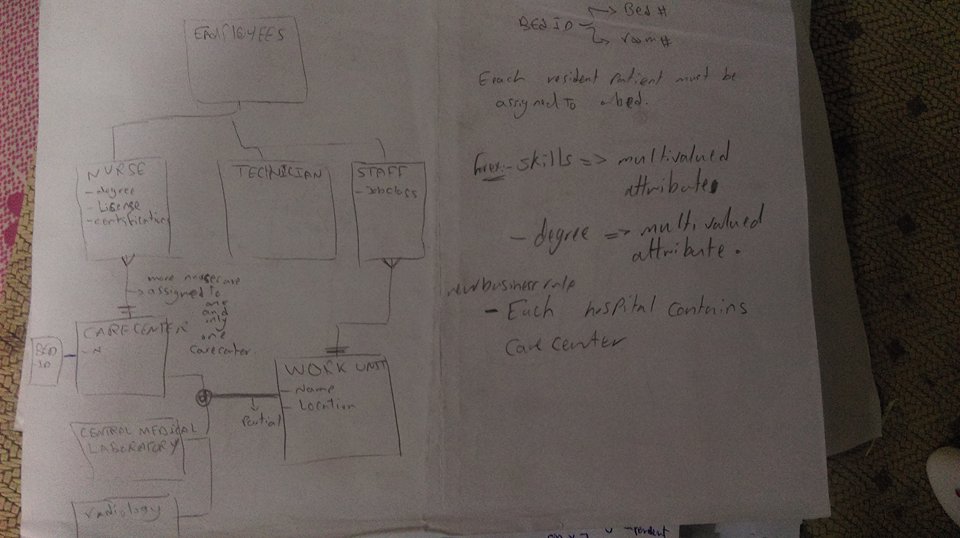 EMPLOYEES
NURSE
- degree
- License
- certification
TECHNICIAN
STAFF
more nurses are
assigned to
one
and
only
one
Care center
CARE CENTER
- N
BED
ID
WORK UNIT
- Name
- Location
Partial
d
CENTRAL MEDICAL
LABORATORY
radiology
BED ID
Bed #
room #
Each resident Patient must be
assigned To bed.
- skills => multivalued
attribute.
- degree => multivalued
attribute.
new business rule
- Each hospital contains
care center